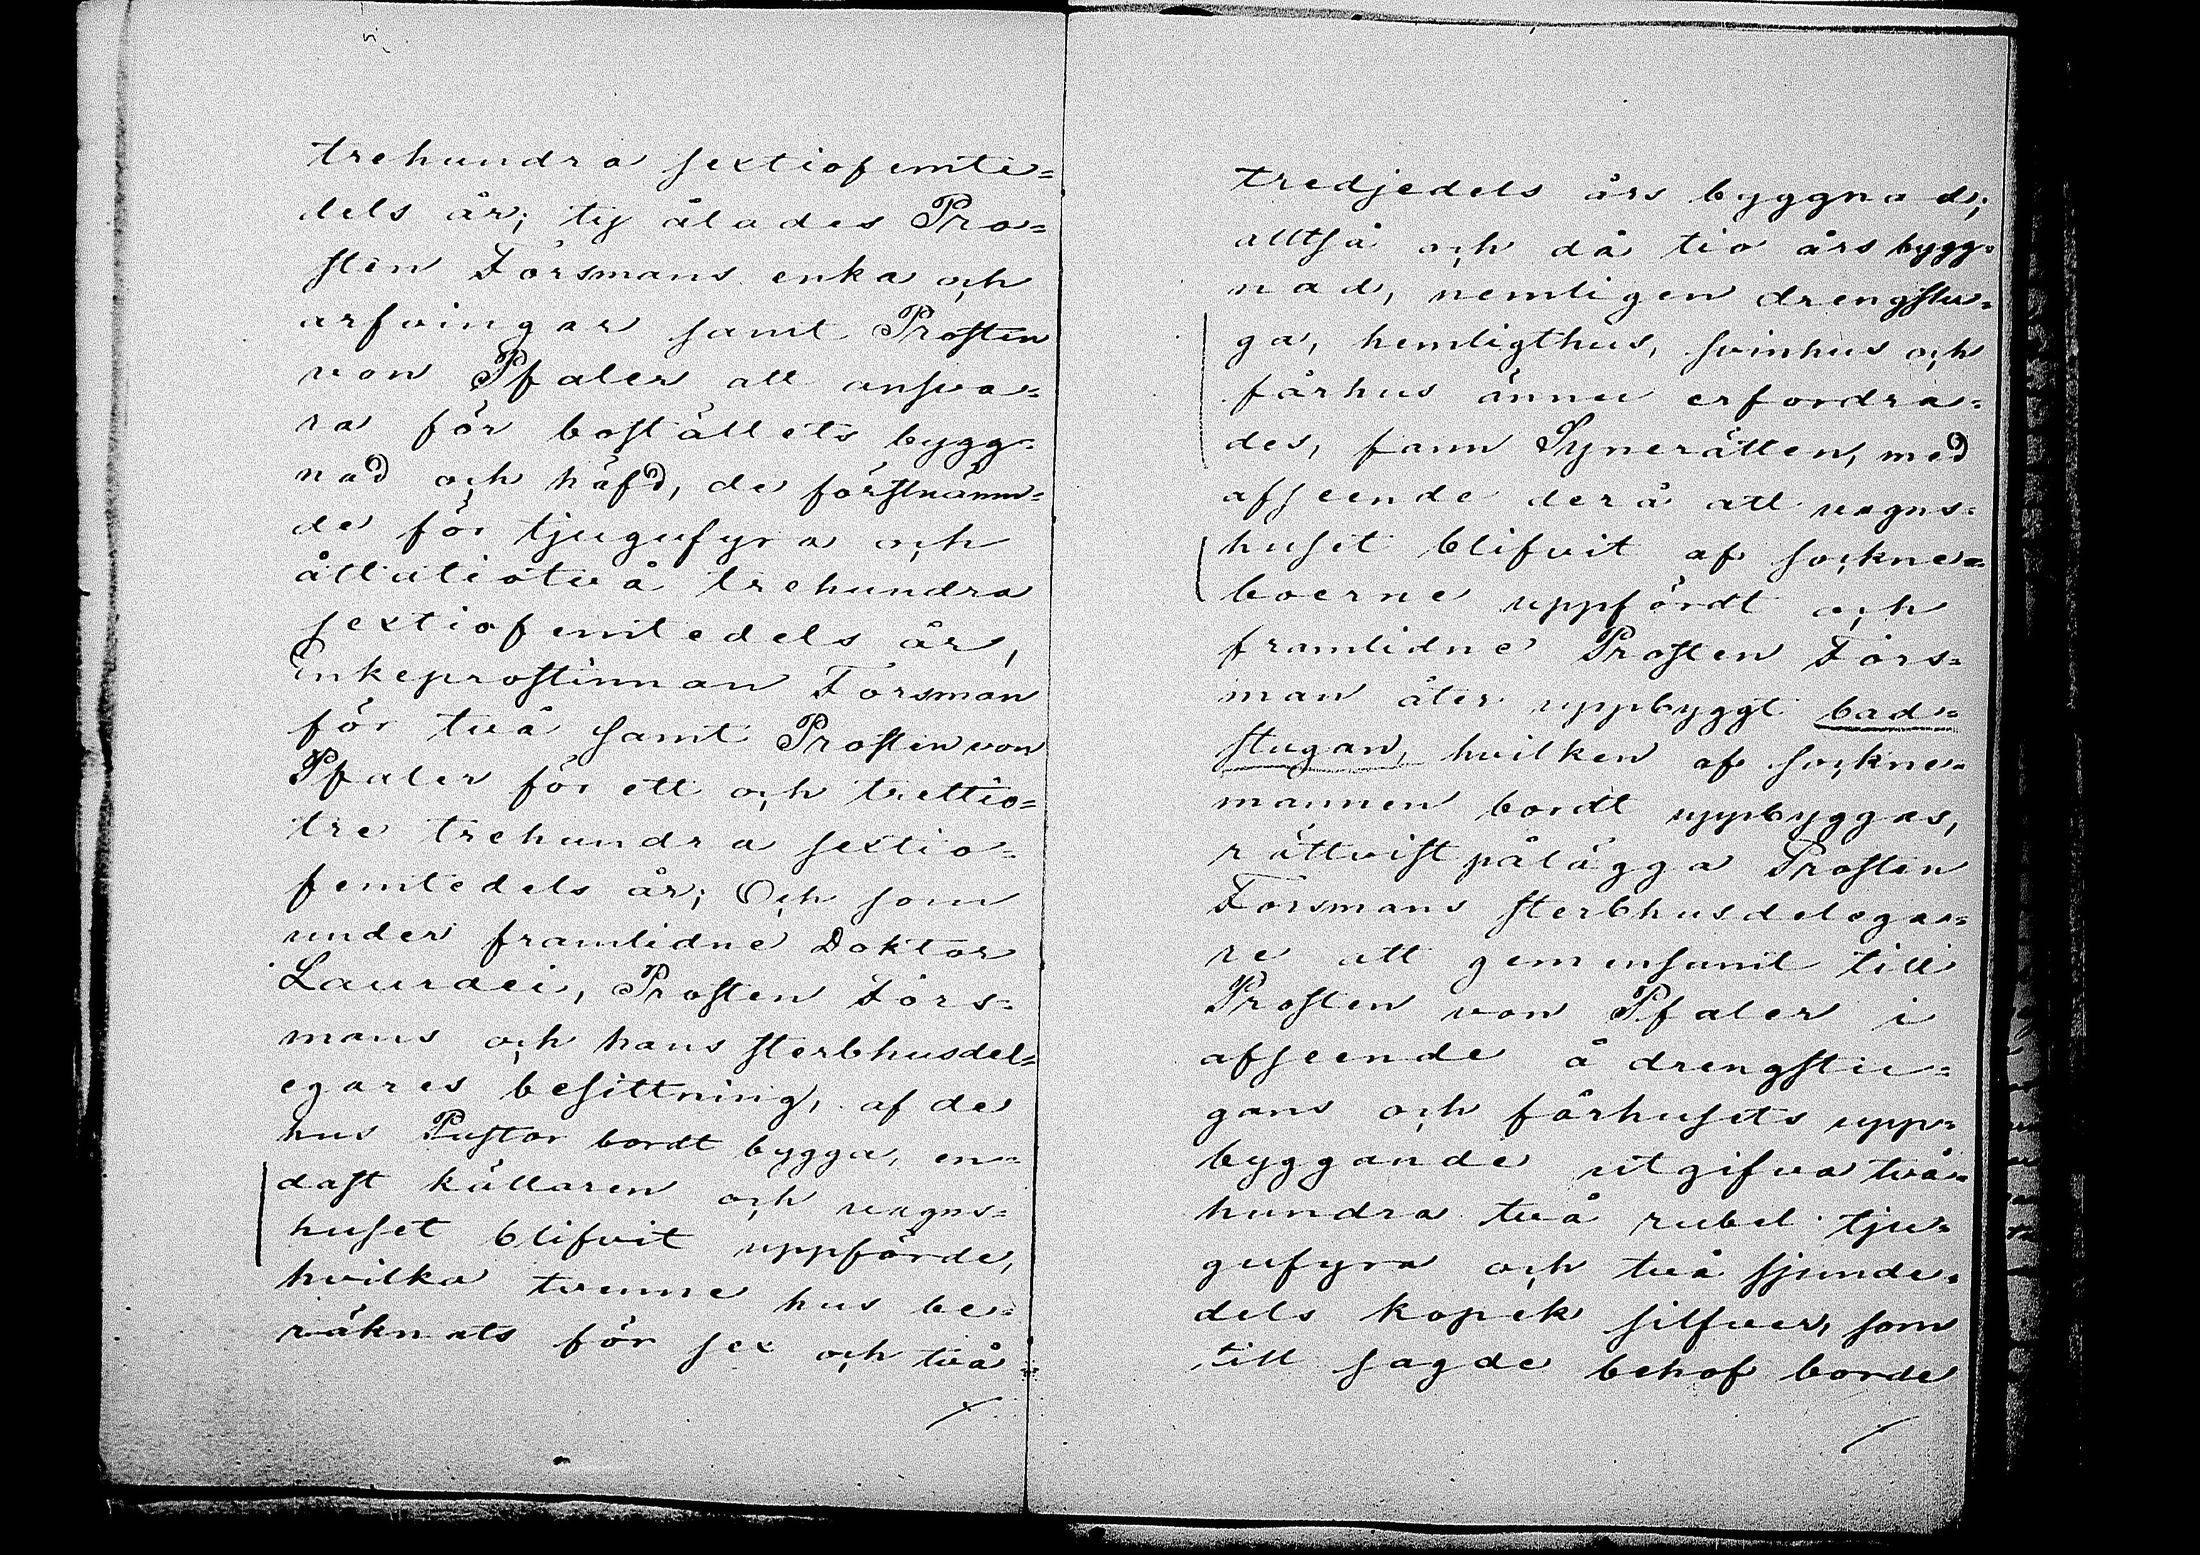 trehundra sextiofemte=
dels år; ty ålades Pro=
sten Forsmans enka och
arfvingar samt Prosten
von Pfaler att ansva=
ra för boställets bygg=
nad och häfd, de förstnämn=
de för tjugufyra och
åttatiotvå trehundra
sextiofemtedels år,
Enkeprostinnan Forsman
för två samt Prosten von
Pfaler för ett och trettio=
tre trehundra sextio=
femtedels år; Och som
under framlidne Doktor
Lauraei, Prosten Fors=
mans och hans sterbhusdel=
egares besittning, af de
hus Pastor bordt bygga, en=
dast källaren och vagns=
huset blifvit uppförde,
hvilka tvenne hus be=
räknats för sex och två=
tredjedels års byggnad;
alltså och då tio års bygg=
nad, nemligen drengstu=
ga, hemligthus, svinhus och
fårhus ännu erfordra=
des, fann Synerätten, med
afseende derå att vagns=
huset blifvit af sockne=
boerne uppfördt och
framlidne Prosten Fors=
man åter uppbyggt bad=
stugan, hvilken af sockne=
mannen bordt uppbyggas,
rättvist pålägga Prosten
Forsmans sterbhusdelega=
re att gemensamt till
Prosten von Pfaler i
afseende å drengstu=
gans och fårhusets upp=
byggande utgifva två=
hundra två rubel tju=
gufyra och två sjunde=
dels kopek silfver, som
till sagde behof borde